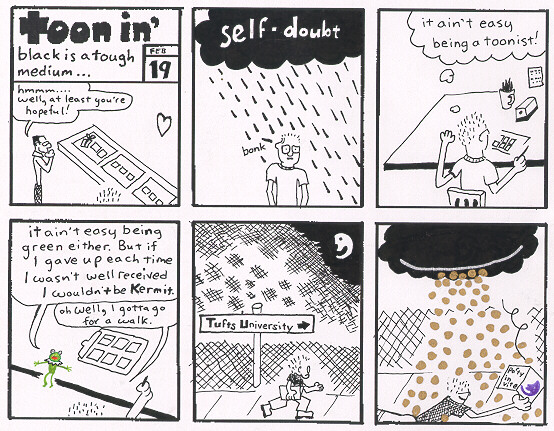 toon in'
black is a tough
medium...
FEB
19
hmmm....
well, at least you're
hopeful!
self-doubt
bonk
it ain't easy
being a toonist!
it ain't easy being
green either. But if
I gave up each time
I wasn't well received
I wouldn't be Kermit.
oh well, I gotta go
for a walk.
Tufts University
Party
invite